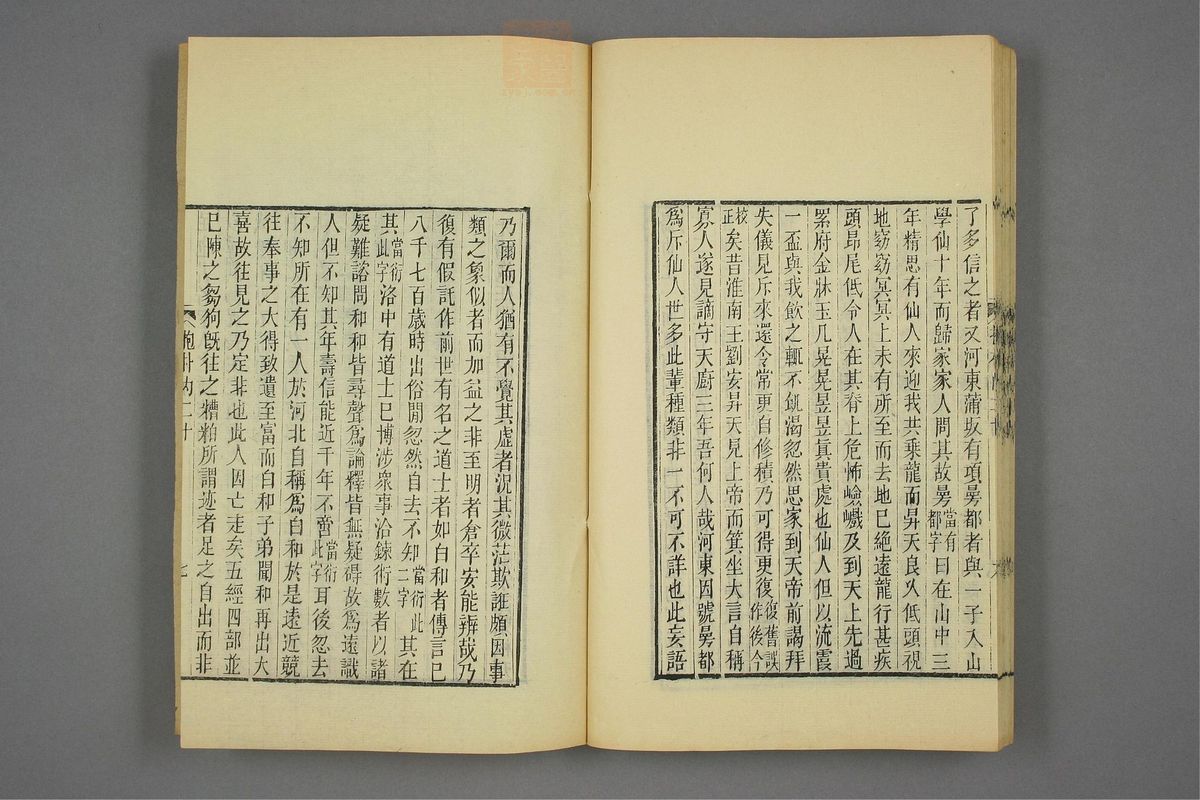 了多信之者又河東蒲坂有項㬅都者與一子入山
學仙十年而歸家家人問其故㬅當有都字曰在山中三
年精思有仙人來迎我共乘龍而昇天良久低頭視
地窈窈冥冥上未有所至而去地已絕遠龍行甚疾
頭昂尾低令人在其脊上危怖嶮巇及到天上先過
紫府金牀玉几晃晃昱昱眞貴處也仙人但以流霞
一盃與我飲之輒不飢渴忽然思家到天帝前謁拜
失儀見斥來還令當更自修積乃可得更復復舊誤作後今
校正矣昔淮南王劉安昇天見上帝而箕坐大言自稱
寡人遂見謫守天廚三年吾何人哉河東因號㬅都
爲斥仙人世多此輩種類非一不可不詳也此妄語
乃爾而人猶有不覺其虛者況其微茫欺誑頗因事
類之象似者而加益之非至明者倉卒安能辨哉乃
復有假託作前世有名之道士者如白和者傳言已
八千七百歲時出俗閒忽然自去不知當衍此二字其在
其當衍此字洛中有道士已博涉衆事洽鍊術數者以諸
疑難諮問和和皆尋聲爲論釋皆無疑碍故爲遠識
人但不知其年壽信能近千年不啻當衍此字耳後忽去
不知所在有一人於河北自稱爲白和於是遠近競
往奉事之大得致遺至富而白和子弟聞和再出大
喜故往見之乃定非也此人因亡走矣五經四部並
已陳之芻狗旣往之糟粕所謂迹者足之自出而非
抱朴內二十
七